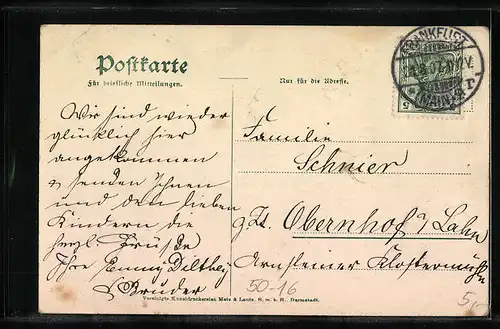 Postkarte
Für briefliche Mitteilungen.
Nur für die Adresse.
FRANKFURT
(MAIN)
5
Wir sind wieder
glücklich hier
angekommen
& senden Ihnen
und den lieben
Kindern die
herzl. Grüße
Ihre Emmy Dilthey
& Bruder
Familie
Schnier
z. Zt. Obernhof a/ Lahn
Arnsteiner Klostermühle
50-16
Vereinigte Kunstdruckereien Metz & Lautz, G. m. b. H., Darmstadt.